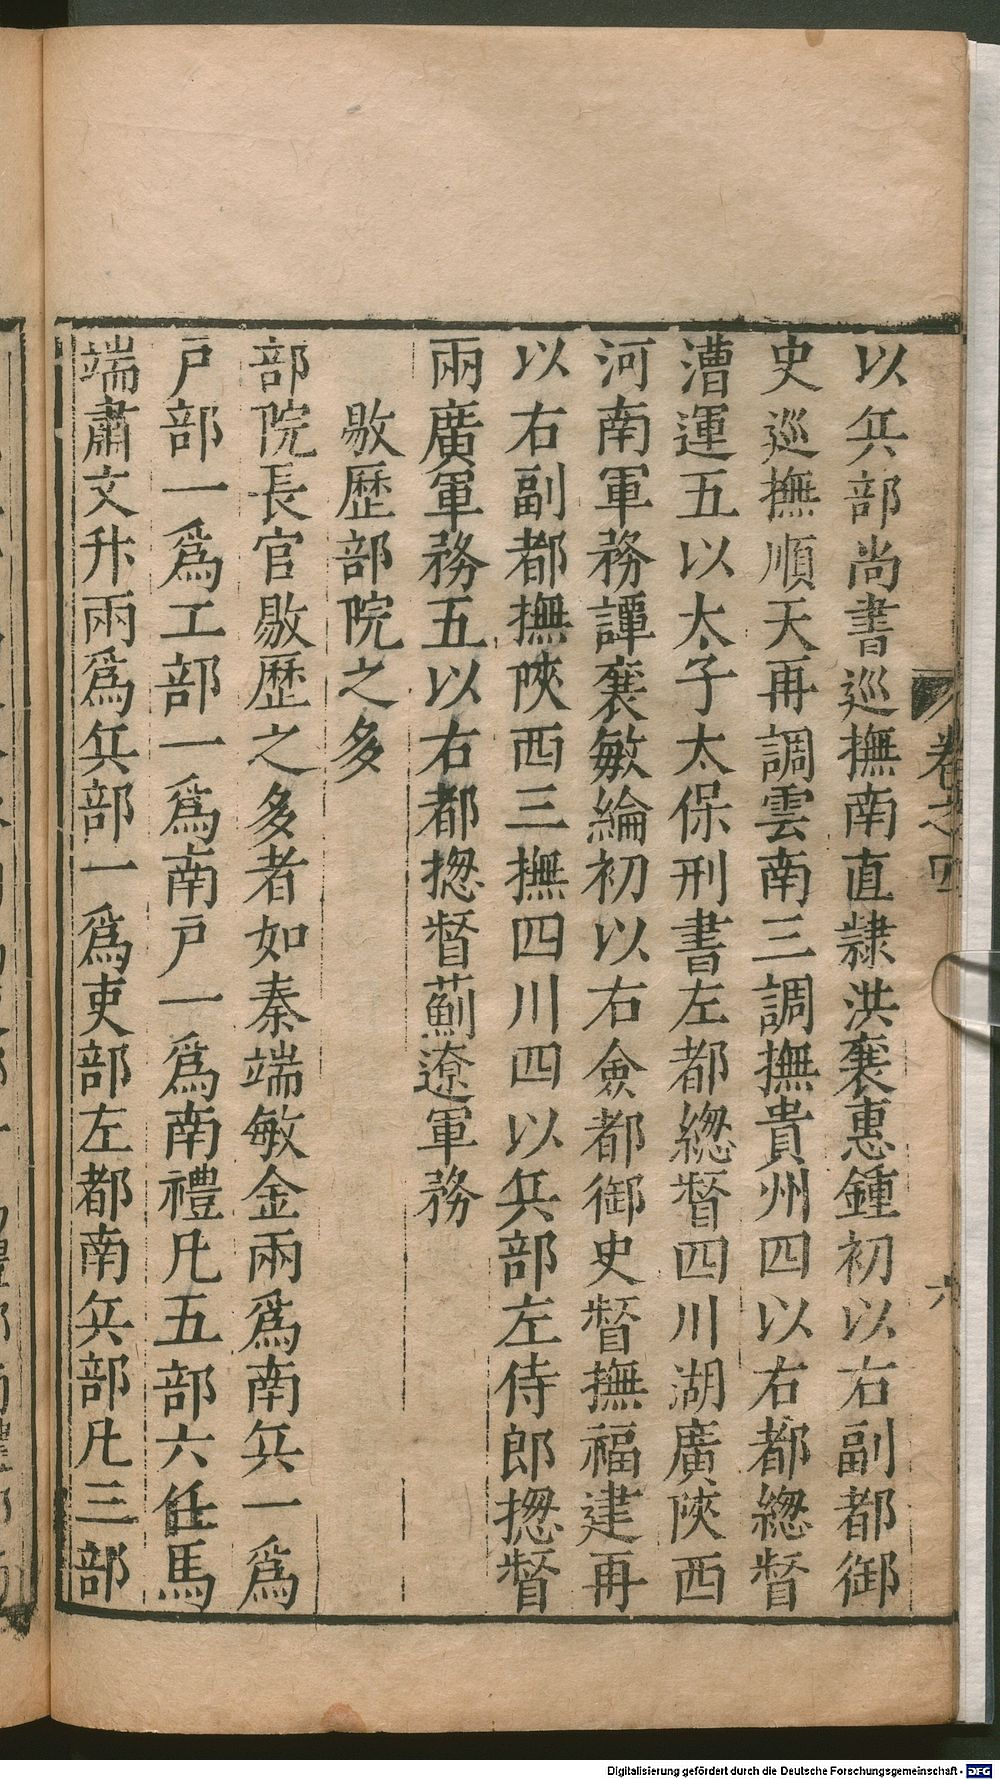 以兵部尚書巡撫南直隸洪襄惠鍾初以右副都御
史巡撫順天再調雲南三調撫貴州四以右都緫督
漕運五以太子太保刑書左都緫督四川湖廣陝西
河南軍務譚襄敏綸初以右僉都御史督撫福建再
以右副都撫陝西三撫四川四以兵部左侍郎揔督
兩廣軍務五以右都揔督薊遼軍務
敭歷部院之多
部院長官敭歷之多者如秦端敏金兩爲南兵一爲
戶部一爲工部一爲南戶一爲南禮凡五部六任馬
端肅文升兩爲兵部一爲吏部左都南兵部凡三部
卷之四
六
Digitalisierung gefördert durch die Deutsche Forschungsgemeinschaft - DFG